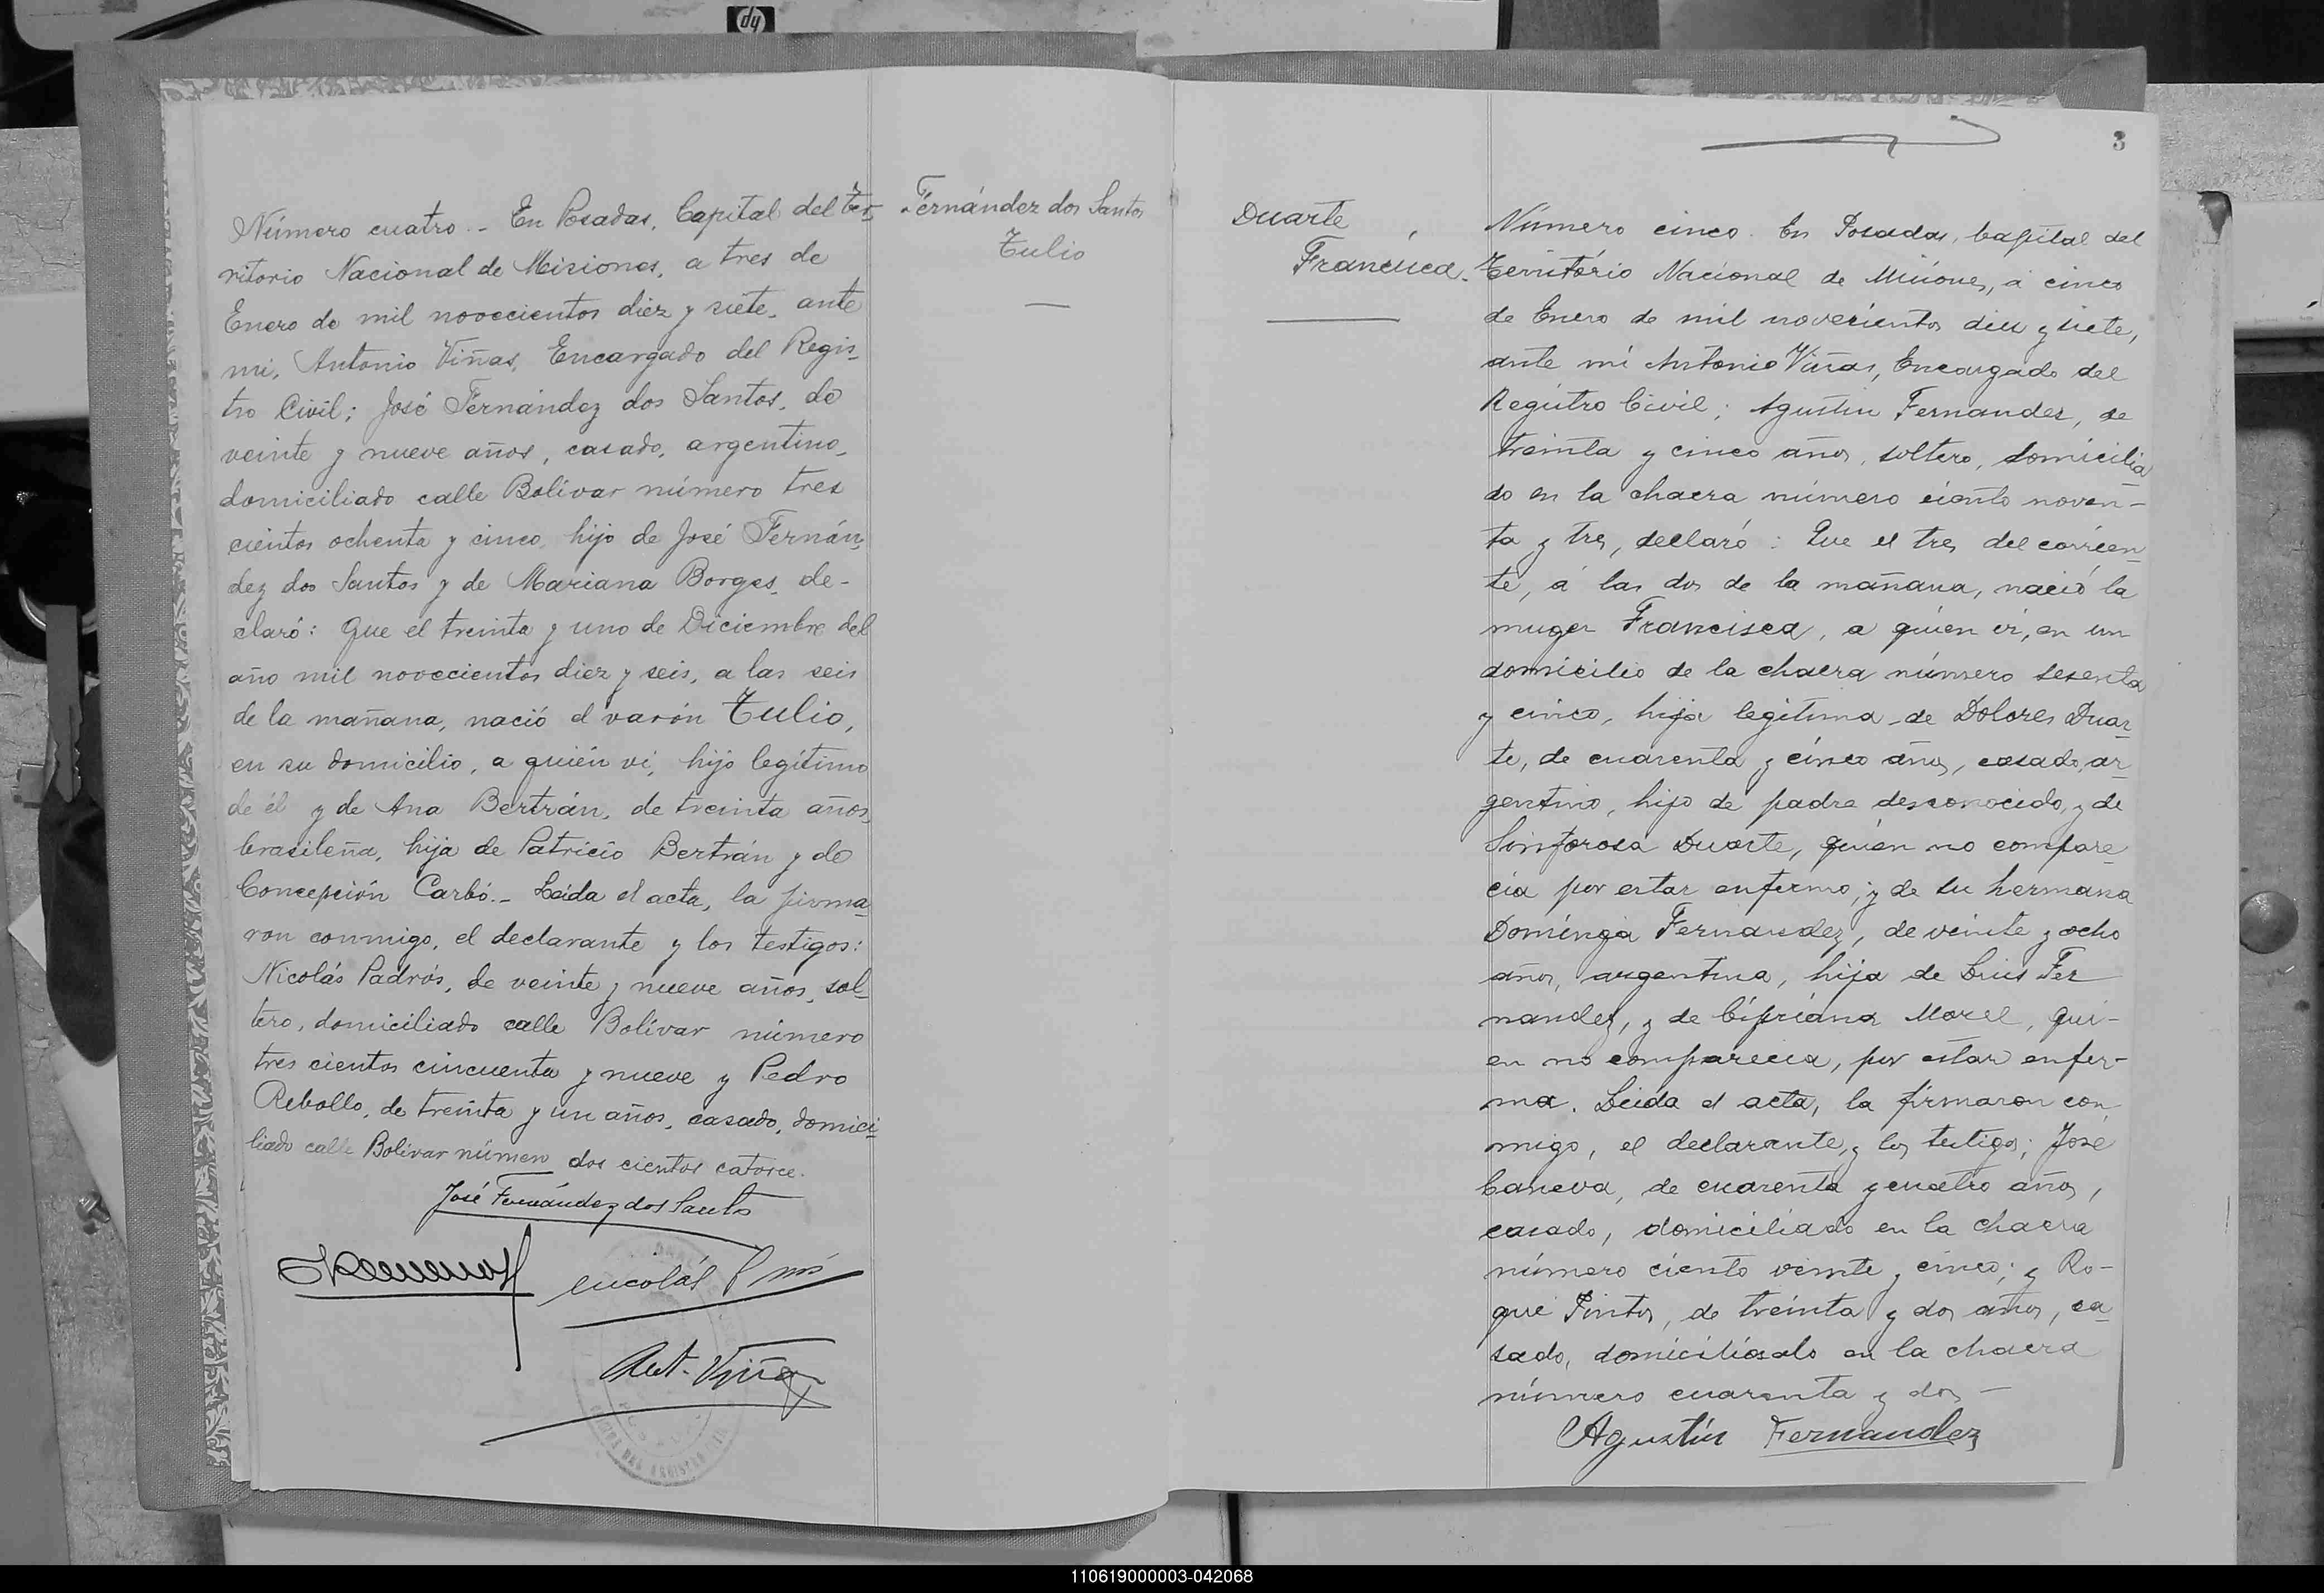 Número cuatro.- En Posadas, Capital del Ter-
ritorio Nacional de Misiones, a tres de
Enero de mil novecientos diez y siete, ante
mi, Antonio Viñas, Encargado del Regis-
tro Civil; José Fernández dos Santos, de
veinte y nueve años, casado, argentino,
domiciliado calle Bolívar número tres
cientos ochenta y cinco, hijo de José Fernán-
dez dos Santos y de Mariana Borges, de-
claró: Que el treinta y uno de Diciembre del
año mil novecientos diez y seis, a las seis
de la mañana, nació el varón Tulio,
en su domicilio, a quién vi, hijo legítimo
de él y de Ana Bertrán, de treinta años,
brasileña, hija de Patricio Bertrán y de
Concepción Carbó.- Leída el acta, la firma-
ron conmigo, el declarante y los testigos:
Nicolás Padrós, de veinte y nueve años, sol-
tero, domiciliado calle Bolívar número
tres cientos cincuenta y nueve y Pedro
Rebollo, de treinta y un años, casado, domici-
liado calle Bolívar número dos cientos catorce.
José Fernández dos Santos
Ant. Viñas
Fernández dos Santos
Tulio
3
Duarte
Francisca.
Número cinco. En Posadas, Capital del
Território Nacional de Misiones, á cinco
de Enero de mil novecientos diez y siete,
ante mi Antonio Viñas, Encargado del
Registro Civil; Agustin Fernandez, de
treinta y cinco años, soltero, domicilia
do en la chacra número ciento noven-
ta y tres, declaró: Que el tres del corrien-
te, á las dos de la mañana, nació la
muger Francisca, a quien vi, en un
domicilio de la chacra número sesenta
y cinco, hija legitima de Dolores Duar-
te, de cuarenta y cinco años, casado, ar-
gentino, hijo de padre desconocido, y de
Sinforosa Duarte, quien no compare-
cia por estar enfermo; y de su hermana
Dominga Fernandez, de veinte y ocho
años, argentina, hija de Luis Fer
nandez, y de Cipriana Morel, qui-
en no comparecia, por estar enfer-
ma. Leida el acta, la firmaron con
migo, el declarante, y los testigos; José
Caneva, de cuarenta y cuatro años,
casado, domiciliado en la chacra
número ciento veinte y cinco; y Ro-
que Pintos, de treinta y dos años, ca-
sado, domiciliado en la chacra
número cuarenta y dos -
Agustín Fernandez
110619000003-042068